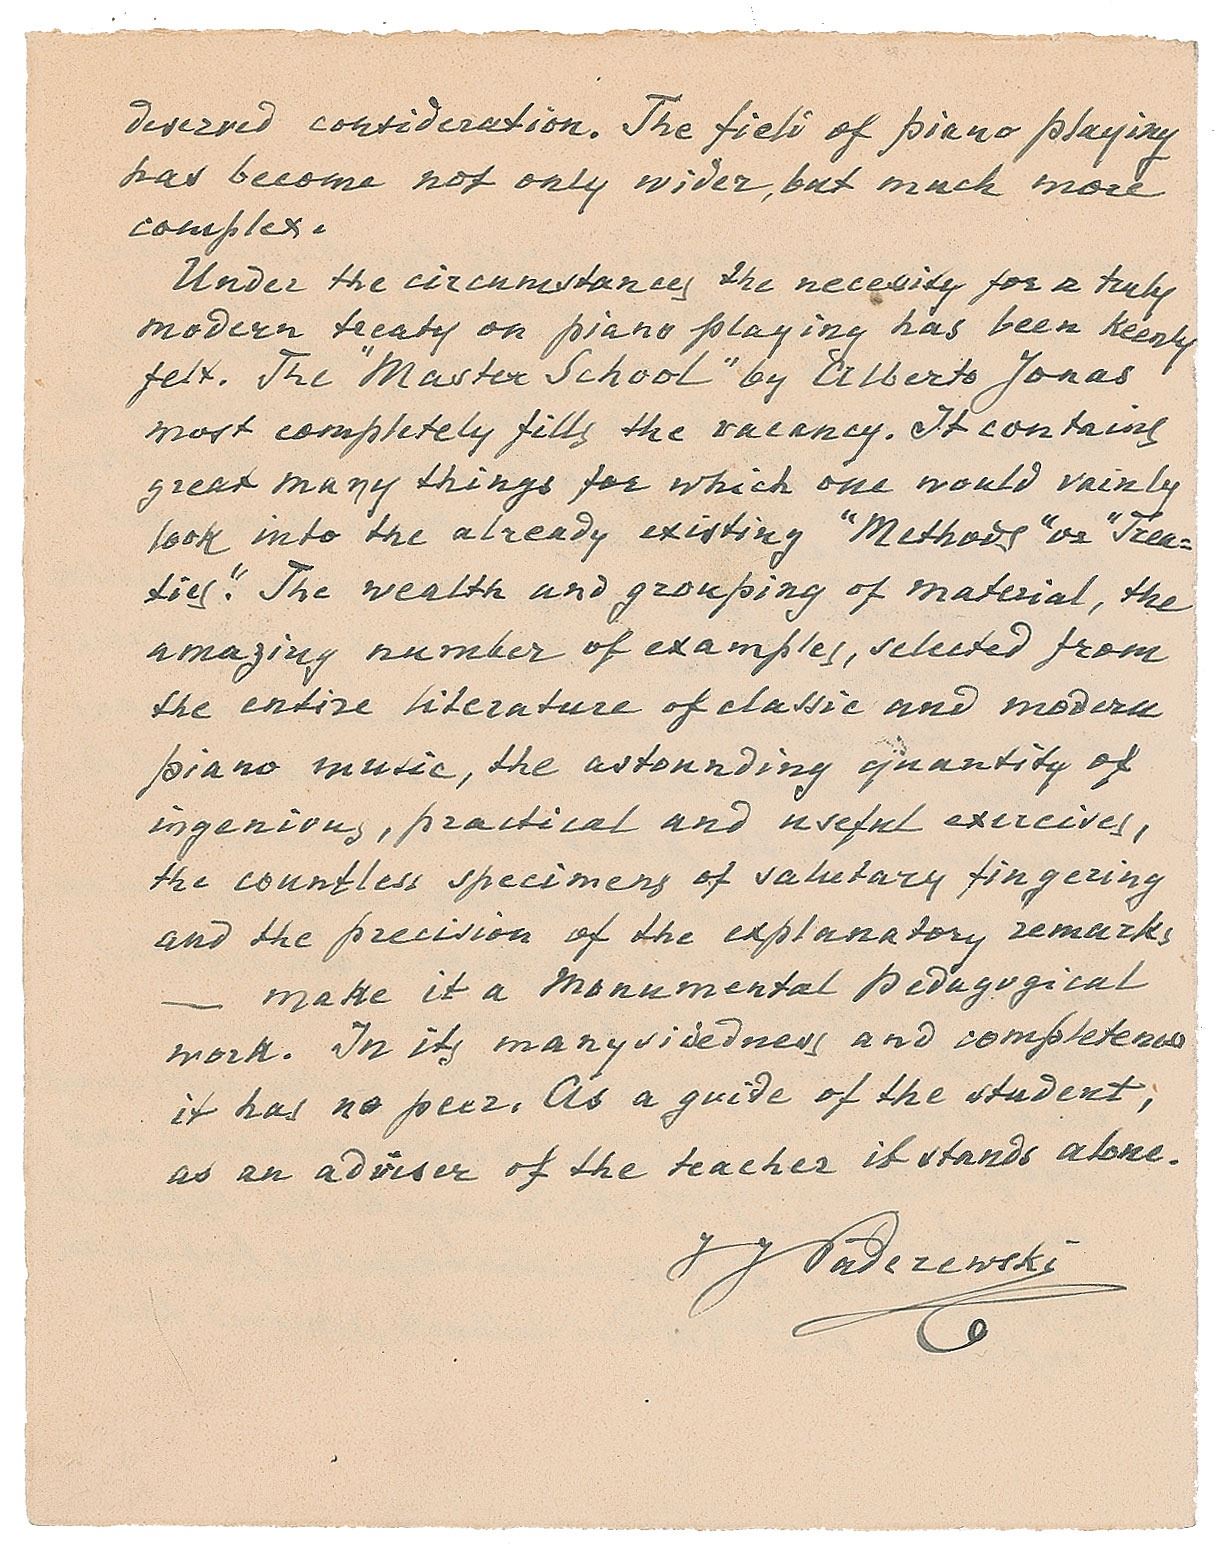 deserved consideration. The field of piano playing
has become not only wider, but much more
complex.
Under the circumstances the necessity for a truly
modern treaty on piano playing has been keenly
felt. The "Master School" by Alberto Jonas
most completely fills the vacancy. It contains
great many things for which one would vainly
look into the already existing "Methods" or "Trea=
ties". The wealth and grouping of material, the
amazing number of examples, selected from
the entire literature of classic and modern
piano music, the astounding quantity of
ingenious, practical and useful exercises,
the countless specimens of salutary fingering
and the precision of the explanatory remarks
— make it a Monumental Pedagogical
work. In its manysidedness and completeness
it has no peer. As a guide of the student,
as an adviser of the teacher it stands alone.
J J Paderewski